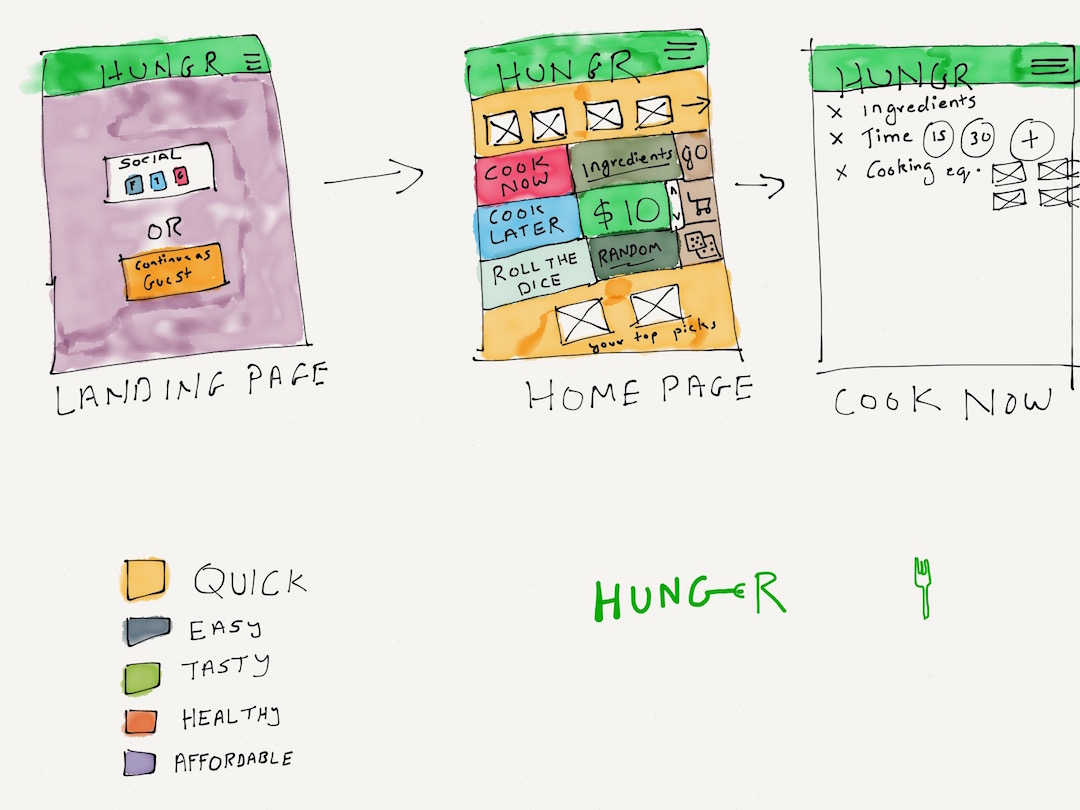 HUNGR
SOCIAL
F T G
OR
Continue as
Guest
LANDING PAGE
HUNGR
COOK
NOW
Ingredients
GO
COOK
LATER
$10
ROLL THE
DICE
RANDOM
your top picks
HOME PAGE
HUNGR
x Ingredients
x Time 15 30 +
x Cooking eq.
COOK NOW
QUICK
EASY
TASTY
HEALTHY
AFFORDABLE
HUNGER